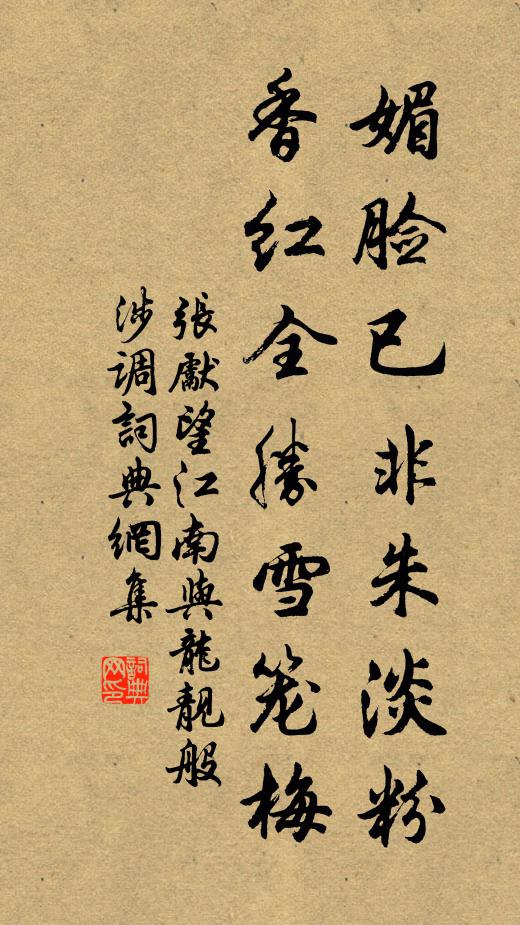 媚脸已非朱淡粉
香红全勝雪笼梅
張獻望江南與龍靚般
涉调詞典網集
詞典网印